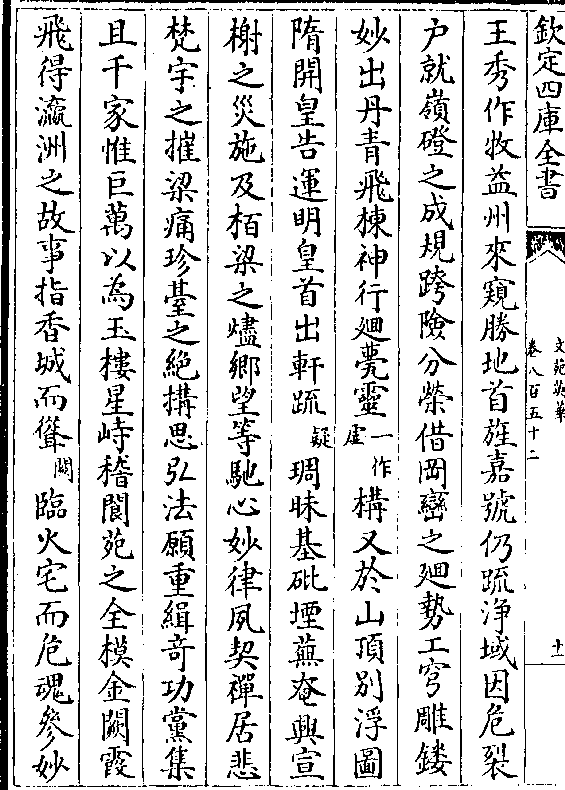 欽定四庫全書
文苑英華
卷八百五十二
十一
王秀作牧益州來窺勝地首旌嘉號仍䟽浄域因危裂
户就嶺磴之成規跨險分榮借岡巒之廻勢工窮雕鏤
妙出丹青飛棟神行廻甍靈一作虚構又於山頂别浮圖
隋開皇告運明皇首出軒䟽疑琱昧基砒堙蕪奄興宣
榭之災施及栢梁之燼鄉望等馳心妙律夙契禪居悲
梵宇之摧梁痛珍臺之絶搆思弘法願重緝竒功黨集
且千家惟巨萬以為玉樓星峙稽閬苑之全模金闕霞
飛得瀛洲之故事指香城而聳闕臨火宅而危魂參妙